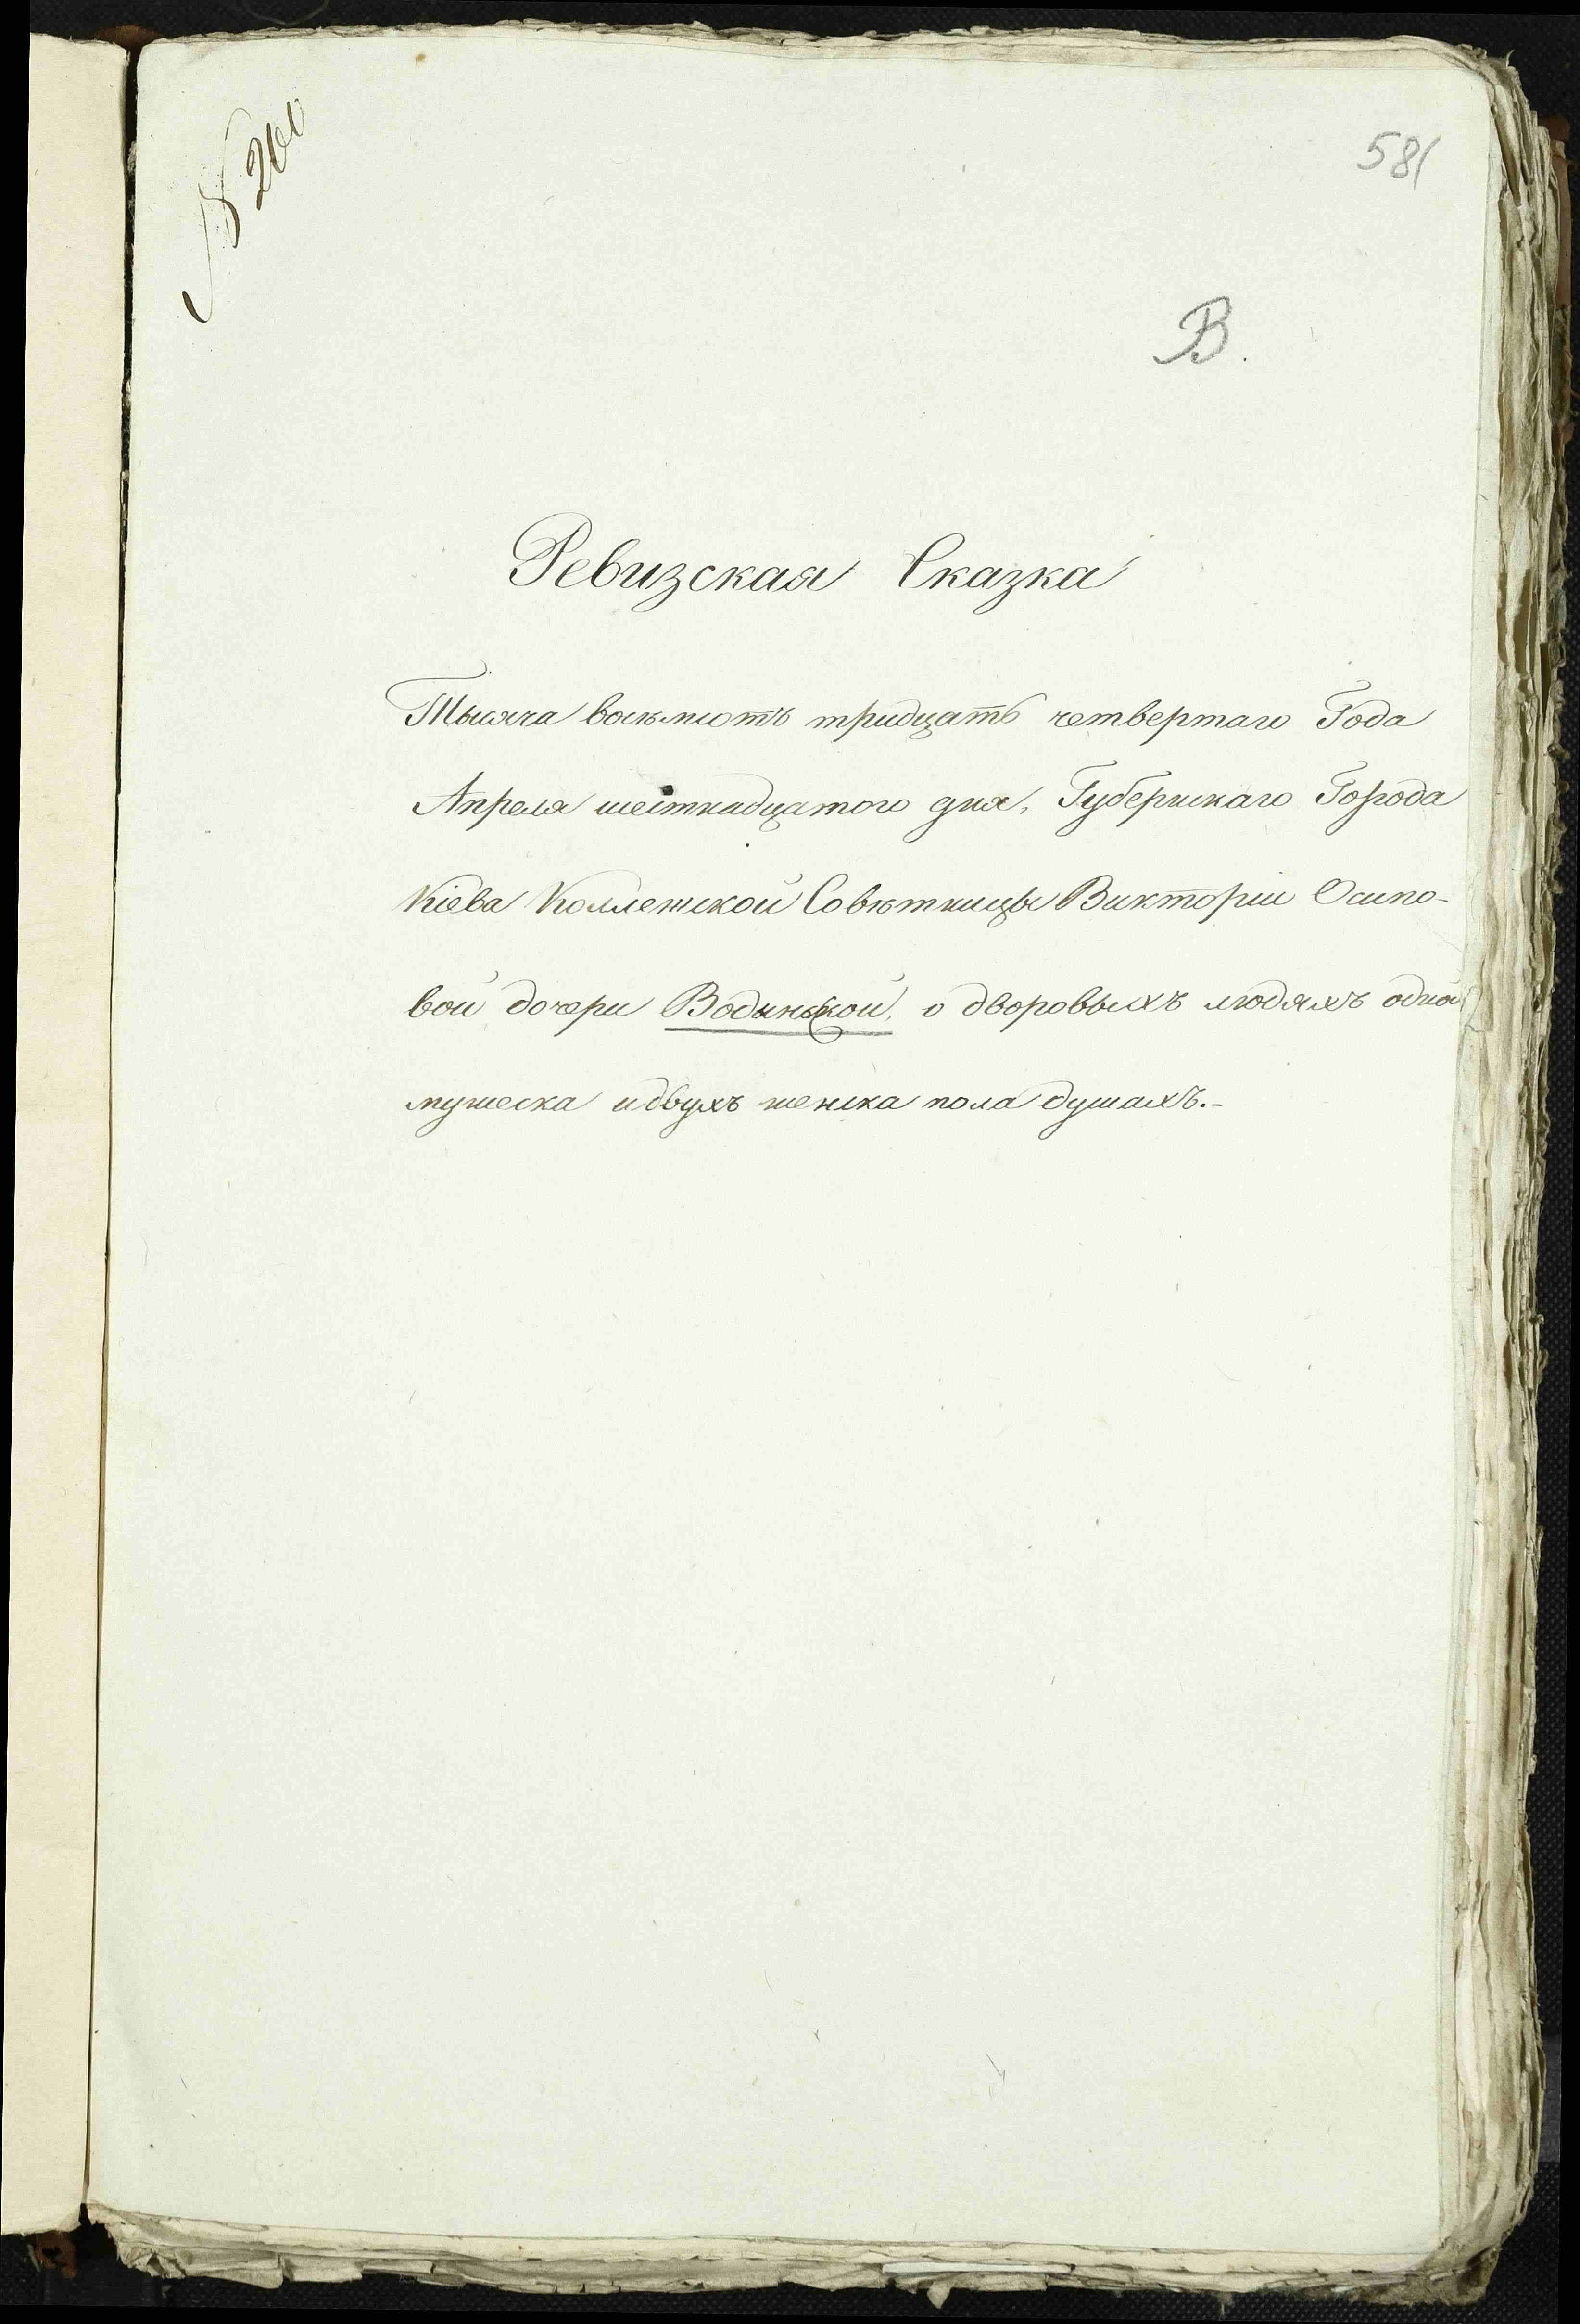 № 200
581
В.
Ревизская Сказка
Тысяча восемьсотъ тридцать четвертаго Года
Апреля шестнадцатого дня, Губернскаго Города
Кіева Коллежской Совѣтницы Викторіи Осипо-
вой дочери Водынской, о дворовыхъ людяхъ одной
мужеска и двухъ женска пола душахъ.-